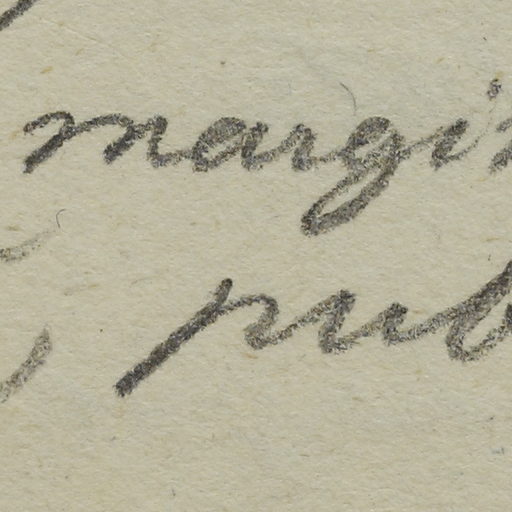 margi
, pub